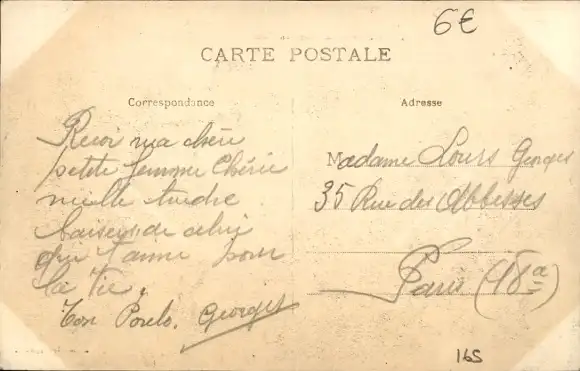 6€
CARTE POSTALE
Correspondance
Adresse
Recoi ma chérie
petite femme Chérie
mille tendre
baisers de celui
qui t'aime pour
la vie.
Ton Georges
Madame Louis Georges
35 Rue des Abbesses
Paris (18e)
165